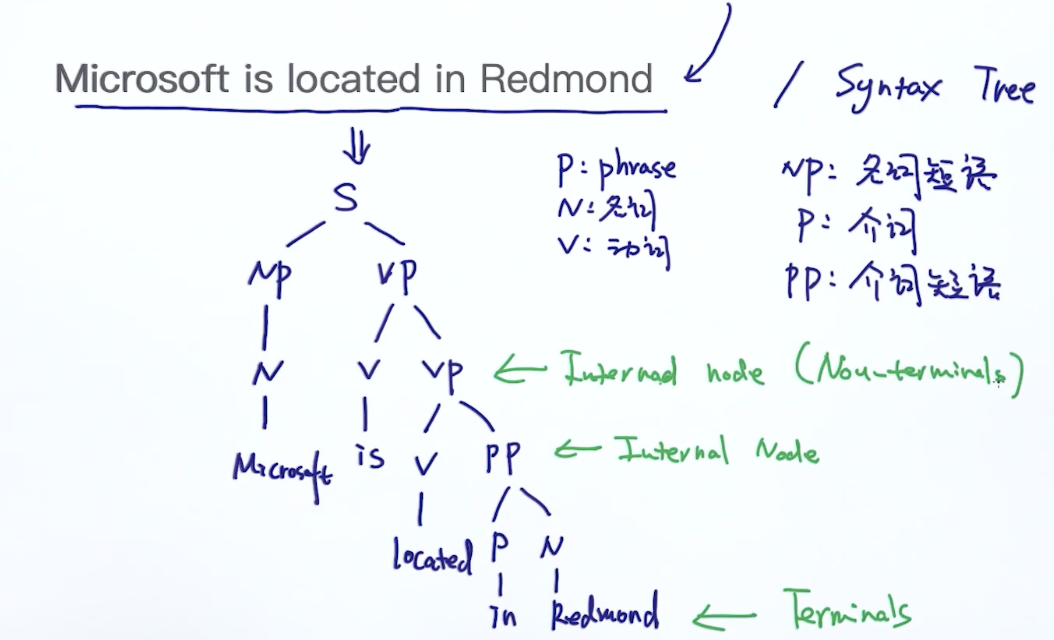 Microsoft is located in Redmond
/ Syntax Tree
P: phrase
N: 名词
V: 动词
NP: 名词短语
P: 介词
PP: 介词短语
S
NP VP
N V VP ← Internal node (Non-terminals)
Microsoft is V PP ← Internal Node
located P N
In Redmond ← Terminals